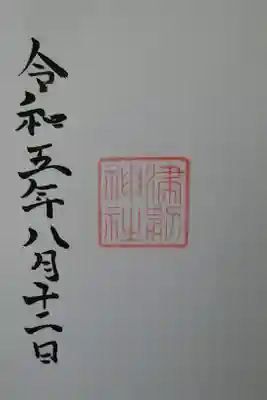 神社
令和五年八月十二日